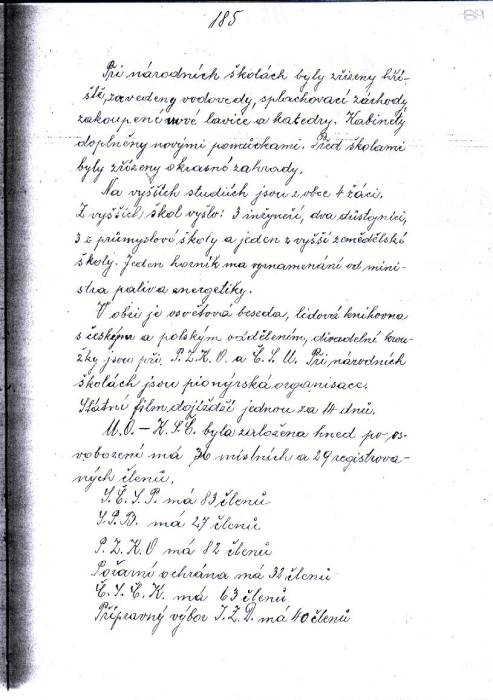 185
Při národních školách byly zřízeny hři-
ště, zavedeny vodovody, splachovací záchody
zakoupené nové lavice a katedry. Kabinety
doplněny novými pomůckami. Před školami
byly zřízeny okrasné zahrady.
Na vyšších studiích jsou z obce 4 žáci.
Z vyšších škol vyšlo: 3 inžynýři, dva důstojníci,
3 z průmyslové školy a jeden z vyšší zemědělské
školy. Jeden horník ma vyznamenání od mini-
stra paliv a energetiky.
V obci je osvětová beseda, lidová knihovna
s českým a polským oddělením, divadelní krou-
žky jsou při P.Z.K.O. a Č.S.M. Při národních
školách jsou pionýrská organisace.
Státní film dojíždší jednou za 14 dnů.
M.O. – K.S.Č. byla založena hned po os-
vobození má 76 místních a 29 registrova-
ných členů.
S.Č.S.P. má 83 členů
S.P.B. má 27 členů
P.Z.K.O má 82 členů
Požarní ochrána má 32 členů
Č.S.Č.K. má 63 členů
Přípravný výbor J.Z.D. má 40 členů